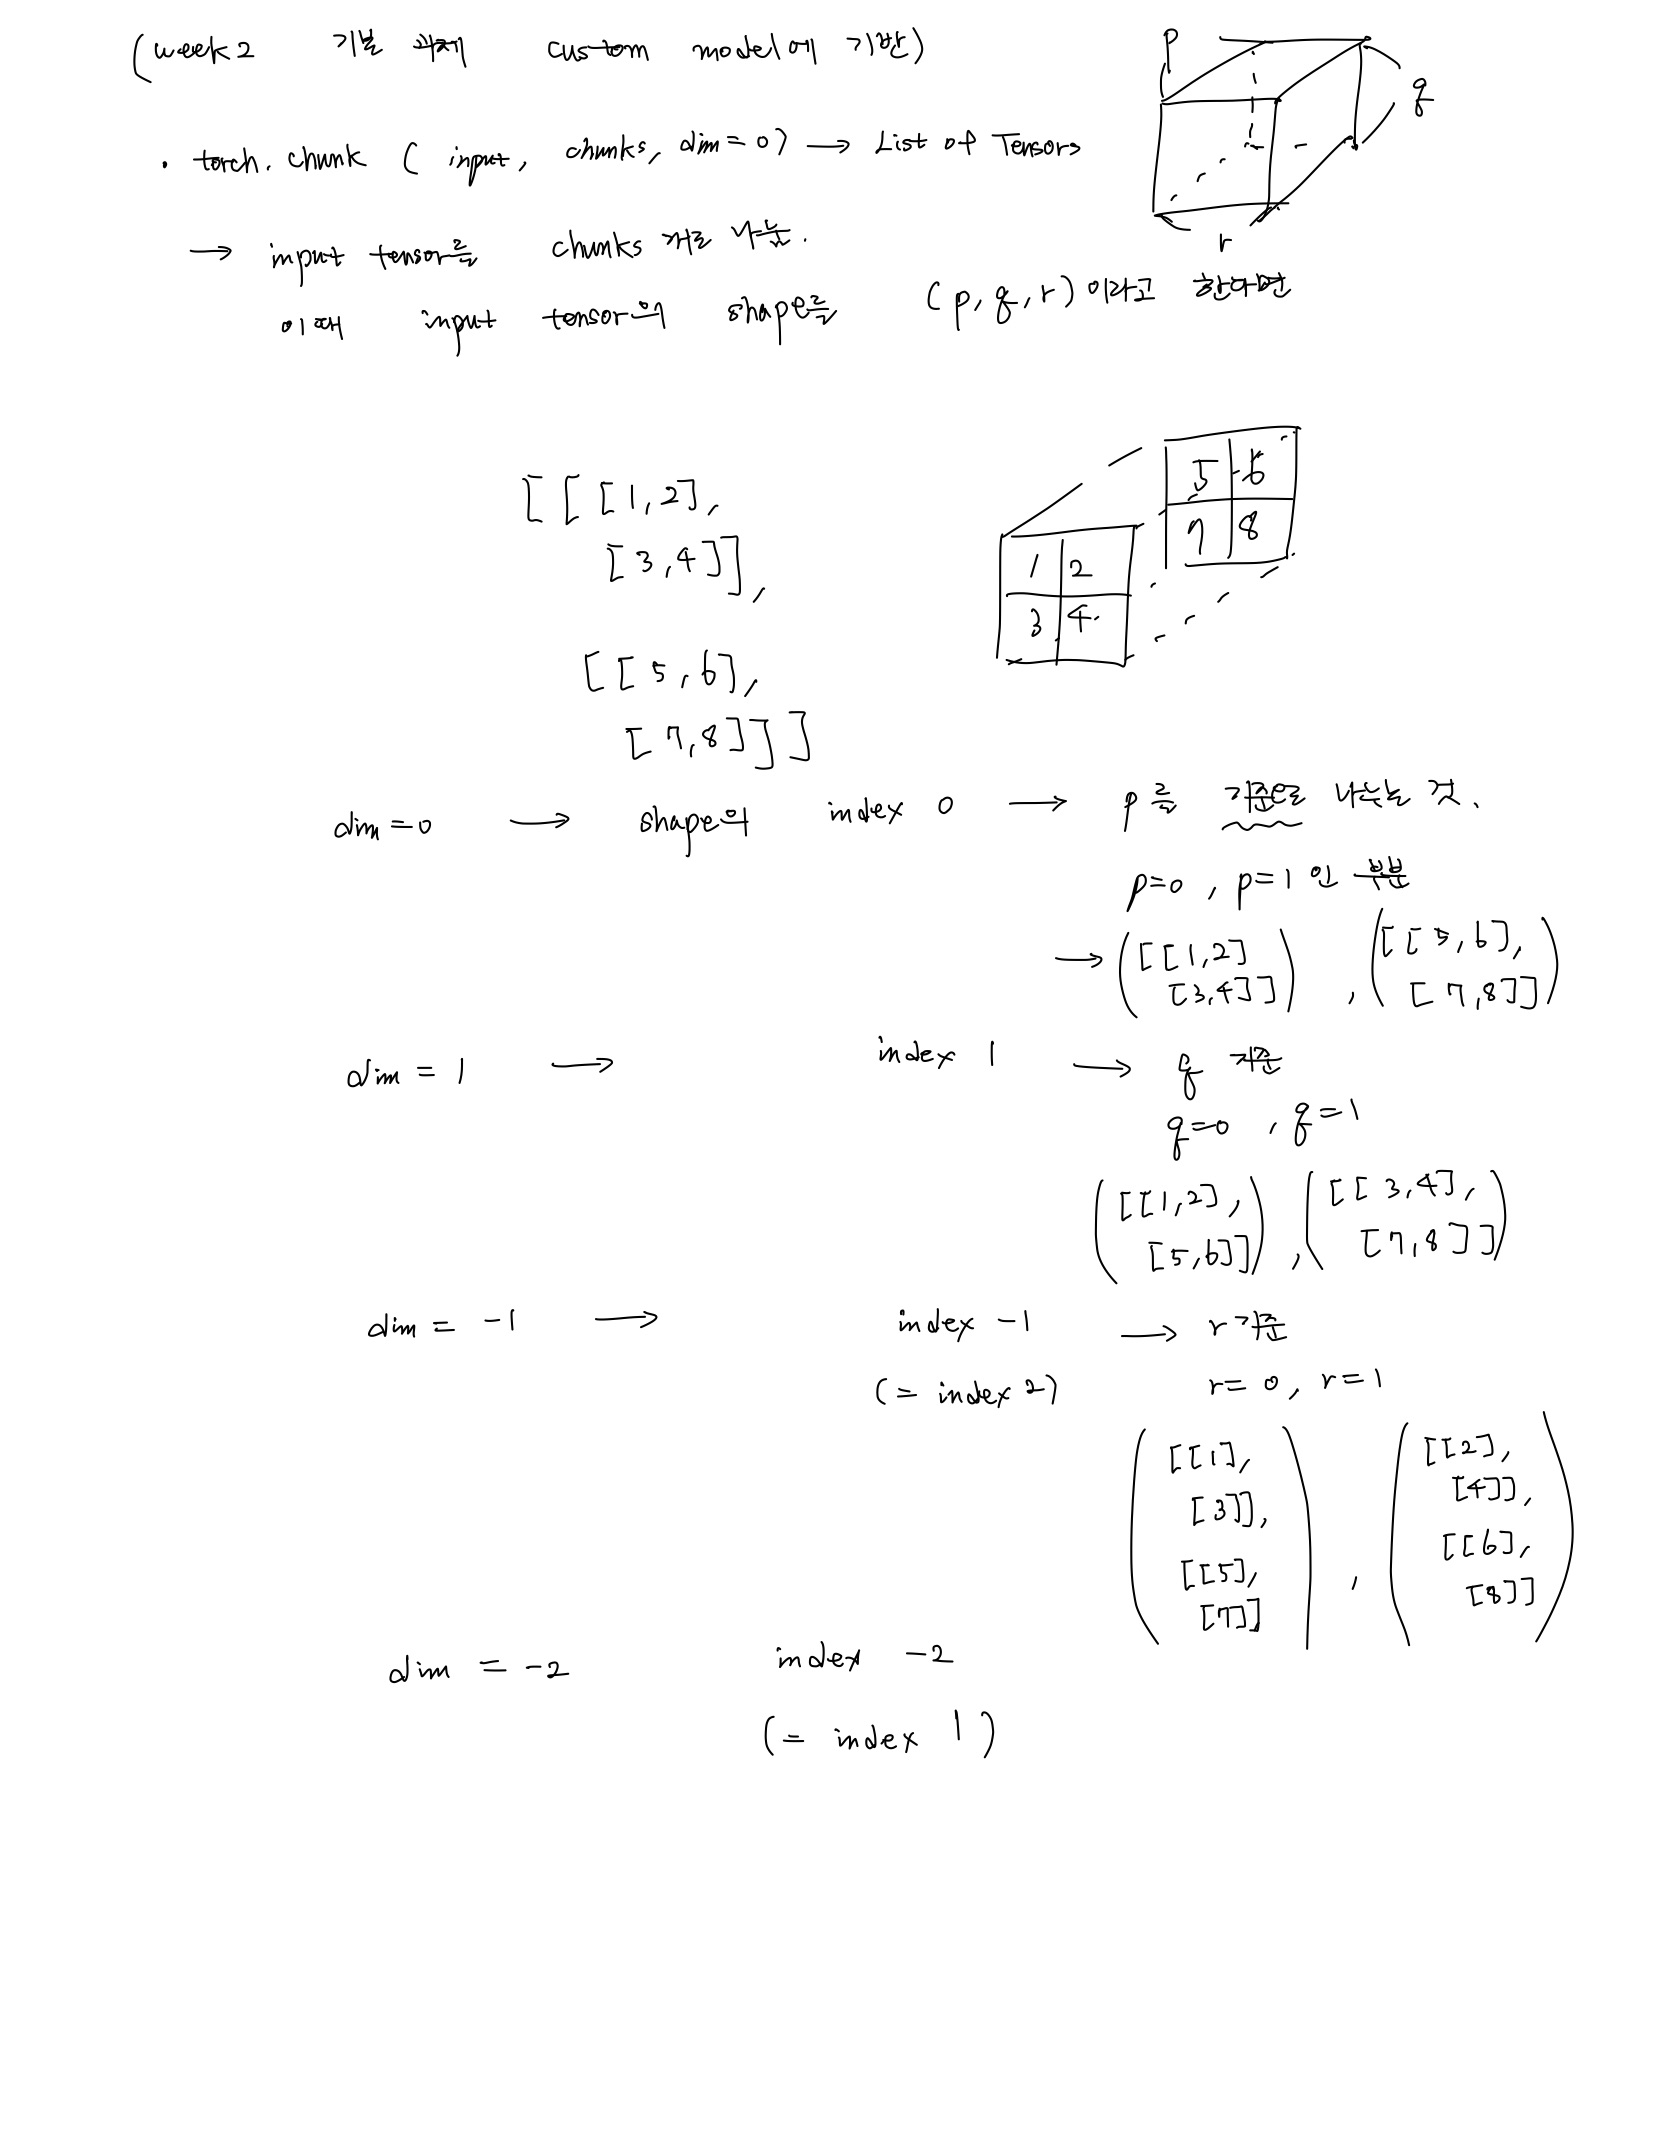 (week 2 기본 과제 custom model에 기반)
p
q
r
· torch. chunk ( input, chunks, dim = 0) → List of Tensors
→ input tensor를 chunks 개로 나눔.
이때 input tensor의 shape를 (p, q, r) 이라고 한다면
[ [ [1,2],
[3,4]],
[[5,6],
[7,8]]]
5 6
7 8
1 2
3 4
dim = 0 → shape의 index 0 → p를 기준으로 나누는 것.
p=0 , p=1 인 부분
→ ([[1,2] [3,4]]) , ([[5,6], [7,8]])
dim = 1 → index 1 → q 기준
q=0 , q=1
([[1,2], [5,6]]) , ([[3,4], [7,8]])
dim = -1 → index -1 → r 기준
(= index 2) r= 0, r=1
([[1], [3]], [[5], [7]]) , ([[2], [4]], [[6], [8]])
dim = -2 index -2
(= index 1)